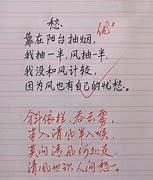 愁
靠在阳台抽烟,
我抽一半,风抽一半,
我没和风计较,
因为风也有自己的忧愁。
斜依栏,吞云雾,
半入清风半入喉,
莫问清风何处走,
清风也识人间愁。